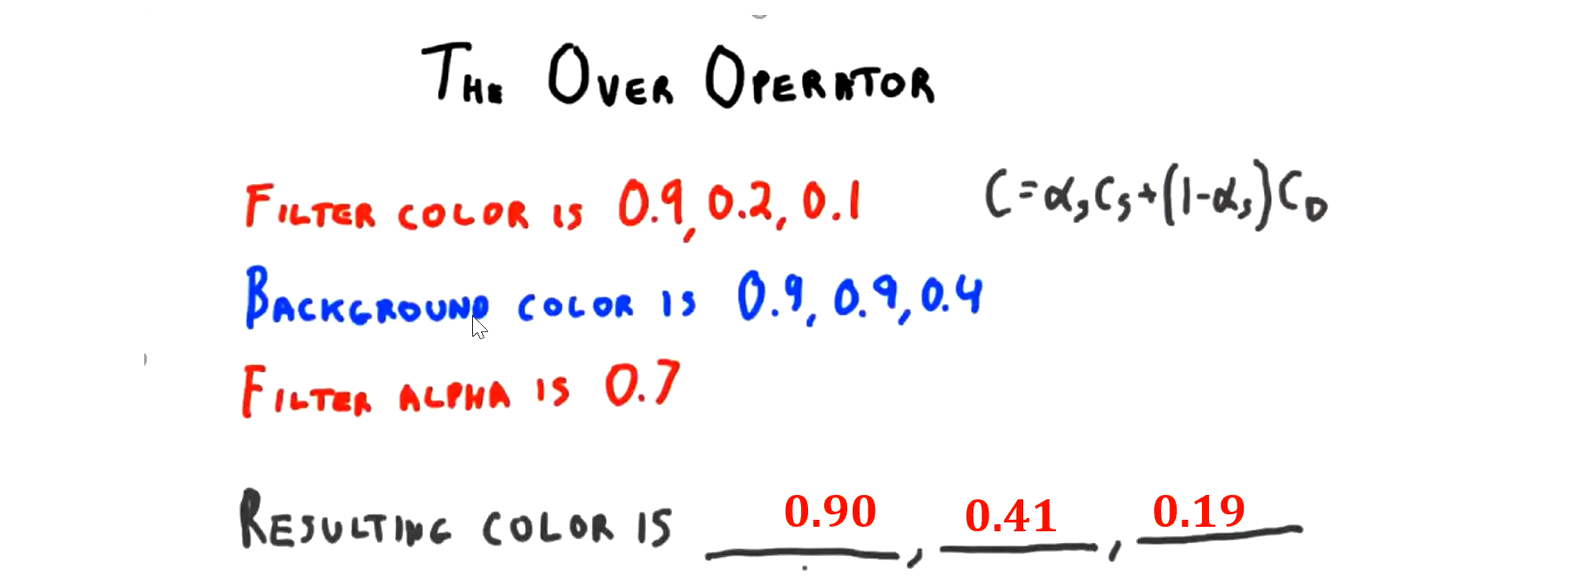 THE OVER OPERATOR
FILTER COLOR IS 0.9, 0.2, 0.1
C=αsCs+(1-αs)CD
BACKGROUND COLOR IS 0.9, 0.9, 0.4
FILTER ALPHA IS 0.7
RESULTING COLOR IS 0.90, 0.41, 0.19